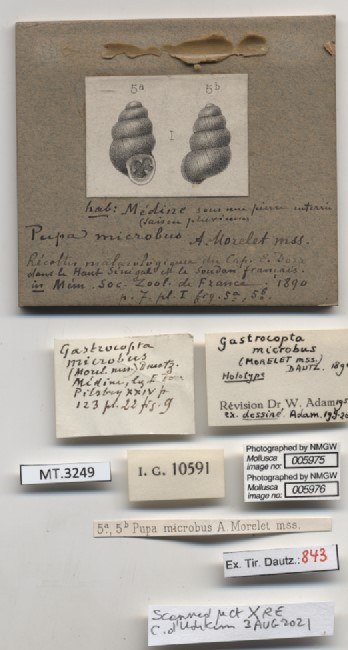 5a 5b
hab: Médine sous une pierre
(saison pluvieuse)
Pupa microbus A. Morelet mss.
Récoltes malacologiques du Capt. E. Dorr
dans le Haut Sénégal et le Soudan français.
in Mém. Soc. Zool. de France. 1890
p. 7. pl. I fig. 5a, 5b
Gastrocopta
microbus
(Morel. mss.) Dautz.
Médine,
Pilsbry XXIV p
123 pl. 22 fig. 9
Gastrocopta
microbus
(MORELET mss.)
DAUTZ.
Holotype
Révision Dr W. Adam
ex. dessiné Adam.
MT.3249
I. G. 10591
Photographed by NMGW
Mollusca
image no: 005975
Photographed by NMGW
Mollusca
image no: 005976
5a, 5b Pupa microbus A. Morelet mss.
Ex. Tir. Dautz.: 843
Scanned µct XRE
3 AUG 2021